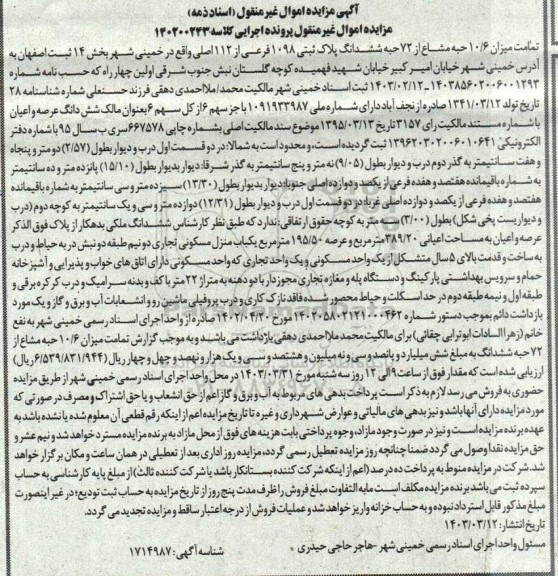 آگهی مزایده اموال غیر منقول (اسناد ذمه)
مزایده اموال غیر منقول پرونده اجرایی کلاسه ۱۴۰۲۰۰۲۴۳
تمامت میزان ۱۰/۶ حبه مشاع از ۷۲ حبه ششدانگ پلاک ثبتی ۱۰۹۸ فرعی از ۱۱۲ اصلی واقع در خمینی شهر بخش ۱۴ ثبت اصفهان به
آدرس خمینی شهر خیابان امیر کبیر خیابان شهید فهمیده کوچه گلستان نبش جنوب شرقی اولین چهار راه که حسب نامه شماره
۱۴۰۳۸۵۶۰۲۰۰۶۰۰۱۲۹۳-۱۴۰۳/۰۲/۱۲ ثبت اسناد خمینی شهر مالکیت محمد/ملااحمدی دهقی فرزند حسنعلی شماره شناسنامه ۲۸
تاریخ تولد ۱۳۴۱/۰۳/۱۲ صادره از نجف آباد دارای شماره ملی ۱۰۹۱۹۳۳۹۸۷ با جز سهم ۶ از کل سهم ۶ بعنوان مالک شش دانگ عرصه و اعیان
با شماره مستند مالکیت رای ۳۱۵۷ تاریخ ۱۳۹۵/۰۳/۱۳ موضوع سند مالکیت اصلی بشماره چاپی ۶۶۷۵۷۸ سری ب سال ۹۵ با شماره دفتر
الکترونیکی ۱۳۹۶۲۰۳۰۲۰۰۶۰۱۰۶۴۱ ثبت گردیده است، و محدود است به شمالا: در دو قسمت اول درب و دیوار بطول (۲/۵۷) دو متر و پنجاه
و هفت سانتیمتر به گذر دوم درب و دیوار بطول (۹/۰۵) نه متر و پنج سانتیمتر به گذر شرقا: دیوار بدیوار بطول (۱۵/۱۰) پانزده متر و ده سانتیمتر
به شماره باقیمانده هفتصد و هفده فرعی از یکصد و دوازده اصلی جنوبا: دیوار بدیوار بطول (۱۳/۳۰) سیزده متر و سی سانتیمتر به شماره باقیمانده
هفتصد و هفده فرعی از یکصد و دوازده اصلی غربا: در دو قسمت اول درب و دیوار بطول (۱۲/۳۱) دوازده متر و سی و یک سانتیمتر به کوچه دوم (درب
و دیواریست پخی شکل) بطول (۳/۰۰) سه متر به کوچه حقوق ارتفاقی: ندارد که طبق نظر کارشناس ششدانگ ملکی بدهکار از پلاک فوق الذکر
عرصه و اعیان به مساحت اعیانی ۳۸۹/۲۰ متر مربع و عرصه ۱۹۵/۵۰ متر مربع یکباب منزل مسکونی تجاری دو نیم طبقه دو نبش در به حیاط و درب
به ساخت و قدمت بالای ۵ سال متشکل از یک واحد مسکونی و یک واحد تجاری که واحد مسکونی دارای اتاق های خواب و پذیرایی و آشپزخانه
حمام و سرویس بهداشتی پارکینگ و دستگاه پله و مغازه تجاری مجوزدار با دو دهنه به متراژ ۲۲ متر با کف و بدنه سرامیک و درب کرکره برقی و
طبقه اول و نیمه طبقه دوم در حد اسکلت و حیاط محصور شده فاقد نازک کاری و درب پروفیلی ماشین رو و انشعابات آب و برق و گاز و یک مورد
بازداشت دائم بموجب دستور شماره ۱۴۰۲۰۵۸۰۲۱۲۱۰۰۰۴۶۲ مورخ ۱۴۰۲/۰۴/۲۰ صادره از واحد اجرای اسناد رسمی خمینی شهر به نفع
خانم (زهرا السادات ابوترابی چقائی) برای مالکیت محمد ملااحمدی دهقی بازداشت می باشند و به موجب گزارش تمامت میزان ۱۰/۶ حبه مشاع از
۷۲ حبه ششدانگ به مبلغ شش میلیارد و پانصد و سی و نه میلیون و هشتصد و سی و یک هزار و نهصد و چهل و چهار ریال (۶/۵۳۹/۸۳۱/۹۴۴ ریال)
ارزیابی شده است که مقدار فوق از ساعت ۹ الی ۱۲ روز سه شنبه مورخ ۱۴۰۳/۰۳/۳۱ در محل واحد اجرای اسناد رسمی خمینی شهر از طریق مزایده
حضوری به فروش می رسد لازم به ذکر است پرداخت بدهی های مربوط به آب و برق و گاز اعم از حق انشعاب و یا حق اشتراک و مصرف در صورتی که
مورد مزایده دارای آنها باشد و نیز بدهی های مالیاتی و عوارض شهرداری و غیره تا تاریخ مزایده اعم از اینکه رقم قطعی آن معلوم شده یا نشده باشد به
عهده برنده مزایده است و نیز در صورت وجود مازاد، وجوه پرداختی بابت هزینه های فوق از محل مازاد به برنده مزایده مسترد خواهد شد و نیم عشر و
حق مزایده نقدا وصول می گردد ضمنا چنانچه روز مزایده تعطیل رسمی گردد، مزایده روز اداری بعد از تعطیلی در همان ساعت و مکان برگزار خواهد
شد. شرکت در مزایده منوط به پرداخت ده درصد (اعم از اینکه شرکت کننده بستانکار باشد یا شرکت کننده ثالث) از مبلغ پایه کارشناسی به حساب
سپرده ثبت می باشد برنده مزایده مکلف است مابه التفاوت مبلغ فروش را ظرف مدت پنج روز از تاریخ مزایده به حساب ثبت تودیع، در غیر اینصورت
مبلغ مذکور قابل استرداد نبوده و به حساب خزانه واریز خواهد شد و عملیات فروش از درجه اعتبار ساقط و مزایده تجدید می گردد.
تاریخ انتشار: ۱۴۰۳/۰۳/۱۲
مسئول واحد اجرای اسناد رسمی خمینی شهر - هاجر حاجی حیدری
شناسه آگهی: ۱۷۱۴۹۸۷